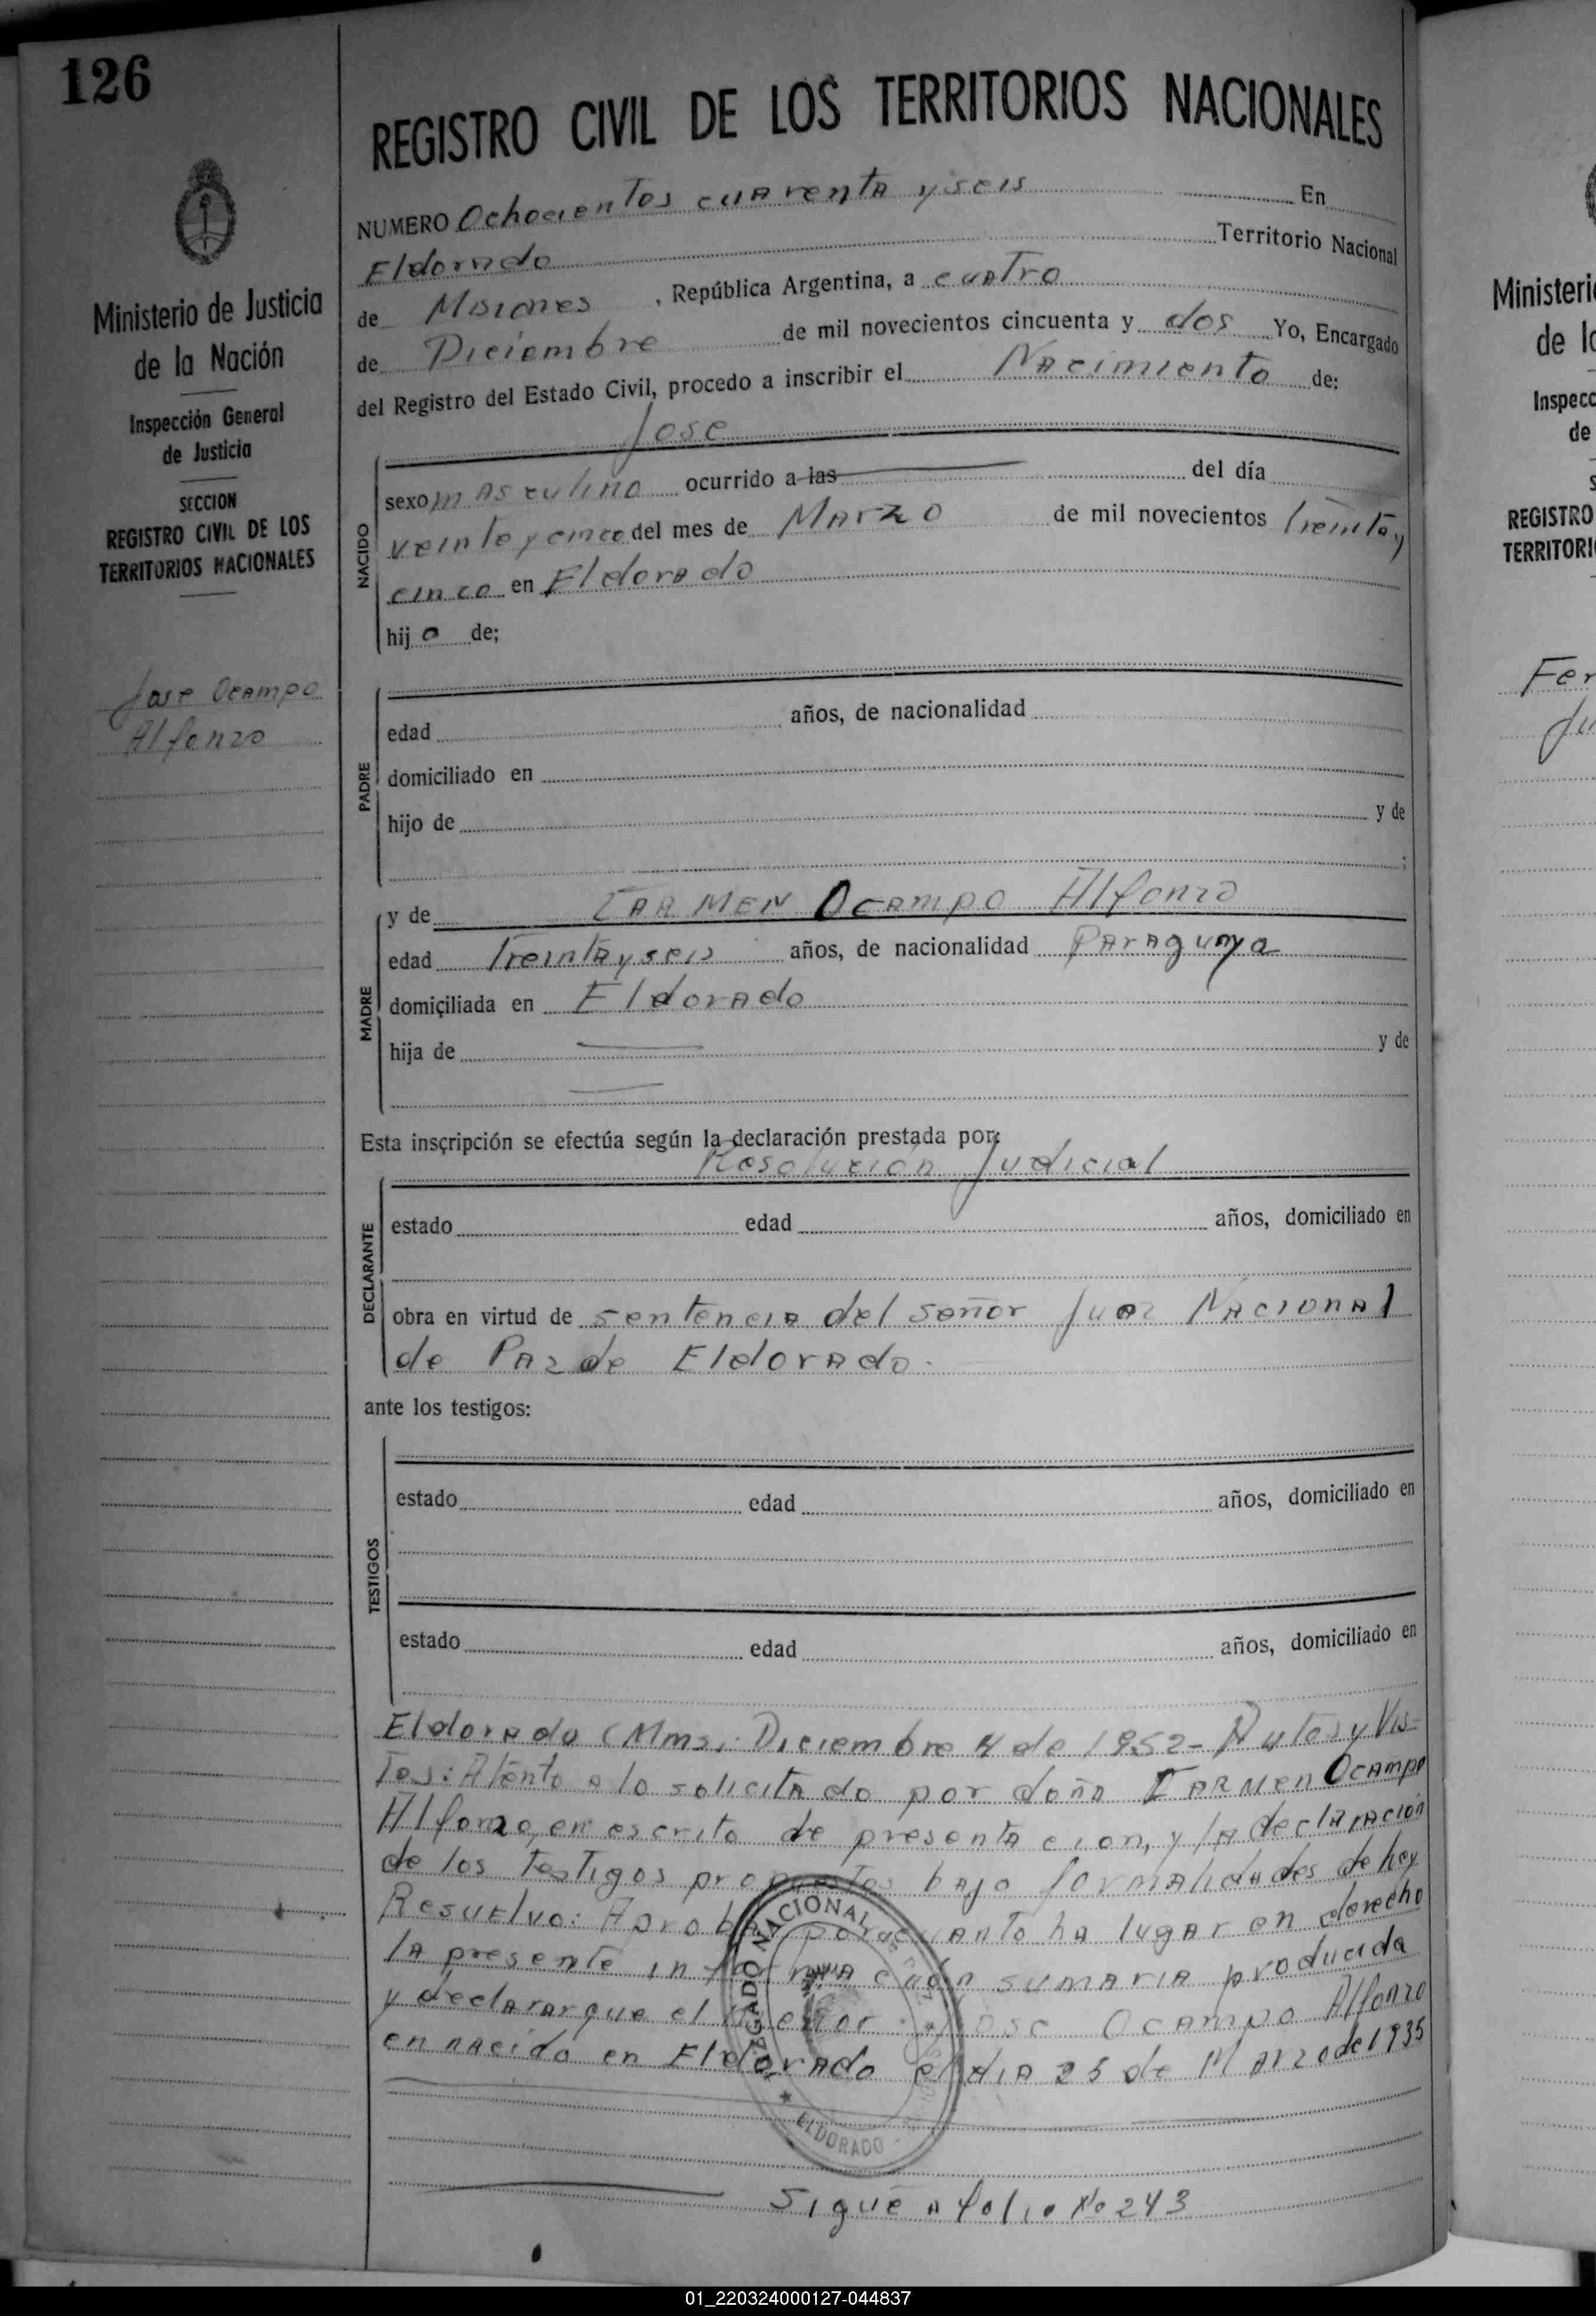 126
REGISTRO CIVIL DE LOS TERRITORIOS NACIONALES
Ministerio de Justicia
de la Nación
Inspección General
de Justicia
SECCION
REGISTRO CIVIL DE LOS
TERRITORIOS NACIONALES
Jose Ocampo
Alfonzo
NUMERO Ochocientos cuarenta y seis En
Eldorado Territorio Nacional
de Misiones , República Argentina, a cuatro
de Diciembre de mil novecientos cincuenta y dos Yo, Encargado
del Registro del Estado Civil, procedo a inscribir el Nacimiento de:
Jose
NACIDO
sexo masculino ocurrido a las del día
veinte y cinco del mes de Marzo de mil novecientos treinta y
cinco en Eldorado
hijo de;
PADRE
edad años, de nacionalidad
domiciliado en
hijo de y de
;
MADRE
y de Carmen Ocampo Alfonzo
edad Treinta y seis años, de nacionalidad Paraguaya
domiciliada en Eldorado
hija de y de
Esta inscripción se efectúa según la declaración prestada por:
Resolucion Judicial
DECLARANTE
estado edad años, domiciliado en
obra en virtud de sentencia del señor Juez Nacional
de Paz de Eldorado.
ante los testigos:
TESTIGOS
estado edad años, domiciliado en
estado edad años, domiciliado en
Eldorado (Mnes). Diciembre 4 de 1952- Autos y Vis-
Tos: Atento a lo solicitado por doña Carmen Ocampo
Alfonzo, en escrito de presentacion, y la declaración
de los Testigos propuestos bajo formalidades de ley
Resuelvo: Aprobar por cuanto ha lugar en derecho
la presente información sumaria producida
y declarar que el menor Jose Ocampo Alfonzo
en nacido en Eldorado el dia 25 de Marzo de 1935
NACIONAL
ELDORADO
Sigue a folio No 243
Ministeri
de la
Inspecc
de
REGISTRO
TERRITORI
Fer
Ju
01_220324000127-044837